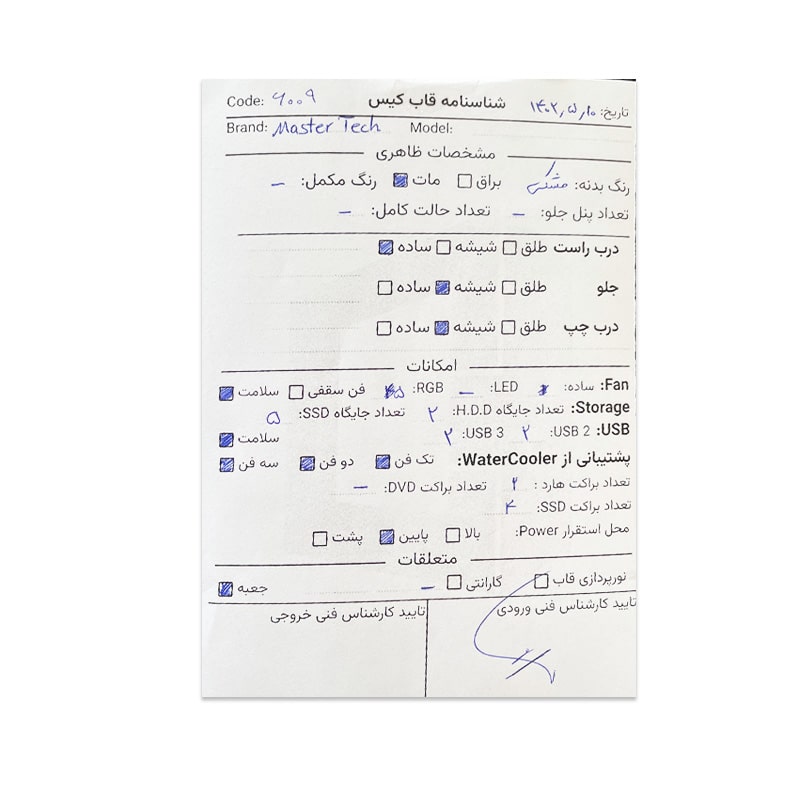 شناسنامه قاب کیس
Code: ۹۰۰۹
تاریخ: ۱۴۰۲٫۵٫۱۰
Brand: Master Tech Model:
مشخصات ظاهری
رنگ بدنه: مشکی براق مات رنگ مکمل: –
تعداد پنل جلو: – تعداد حالت کامل: –
درب راست طلق شیشه ساده
جلو طلق شیشه ساده
درب چپ طلق شیشه ساده
امکانات
Fan: ساده: LED: – RGB: فن سقفی سلامت
Storage: تعداد جایگاه H.D.D: ۲ تعداد جایگاه SSD: ۵
USB: USB 2: ۲ USB 3: ۲ سلامت
پشتیبانی از WaterCooler: تک فن دو فن سه فن
تعداد براکت هارد : ۲ تعداد براکت DVD: –
تعداد براکت SSD: ۴
محل استقرار Power: بالا پایین پشت
متعلقات
نورپردازی قاب گارانتی – جعبه
تایید کارشناس فنی ورودی تایید کارشناس فنی خروجی